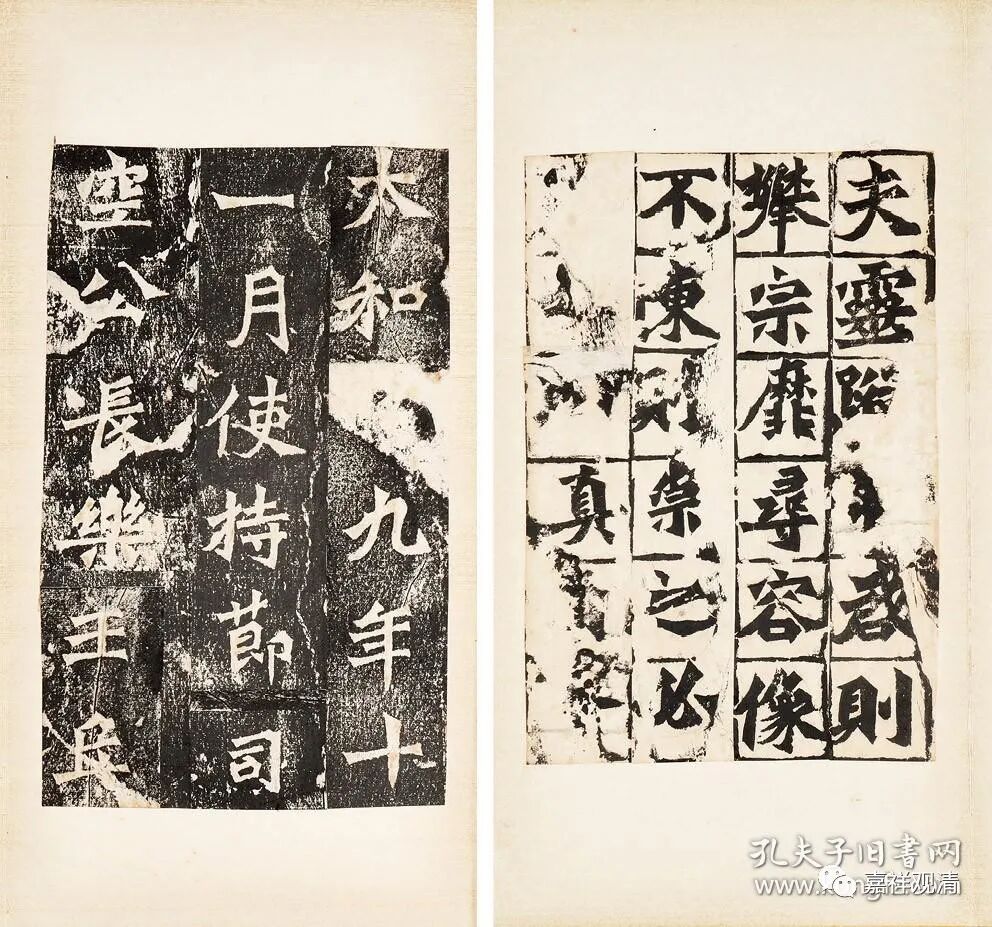 夫靈啓則
攀宗靡尋容像
不陳則崇之必
真
太和九年十
一月使持節司
空公長樂王丘
孔夫子旧书网
www.kongfz.cn
嘉祥观清